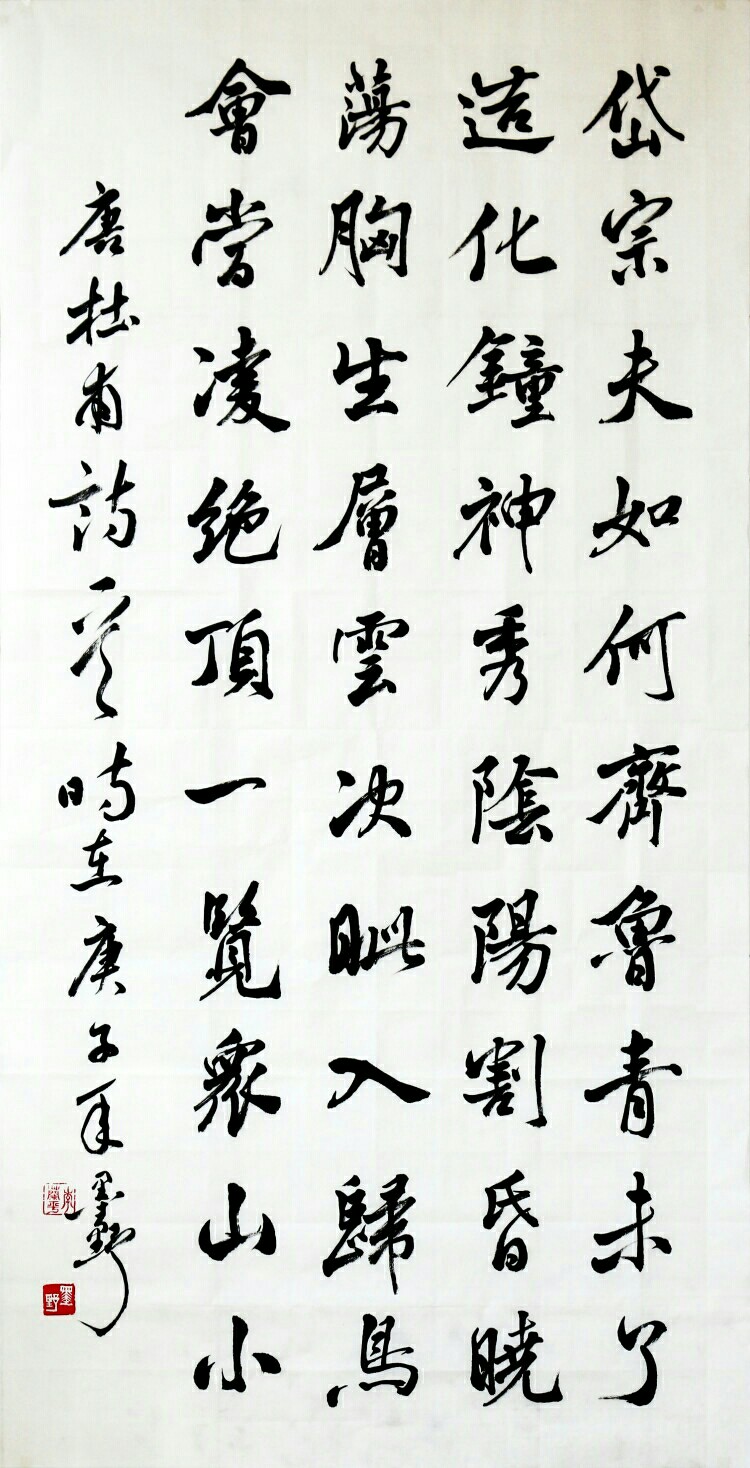 岱宗夫如何齊魯青未了
造化鐘神秀陰陽割昏曉
蕩胸生層雲決眦入歸鳥
會當凌絕頂一覽衆山小
唐杜甫詩一首時在庚子年墨野
墨野